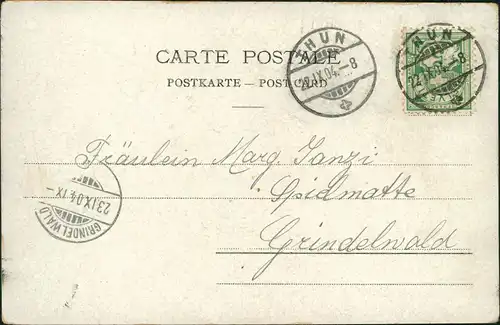 THUN
22.IX.04.–8
THUN
22.IX.04.–8
CARTE POSTALE
POSTKARTE – POST CARD
Fräulein Marg. Janzi
Spielmatte
Grindelwald
23.IX.04.IX–
GRINDELWALD